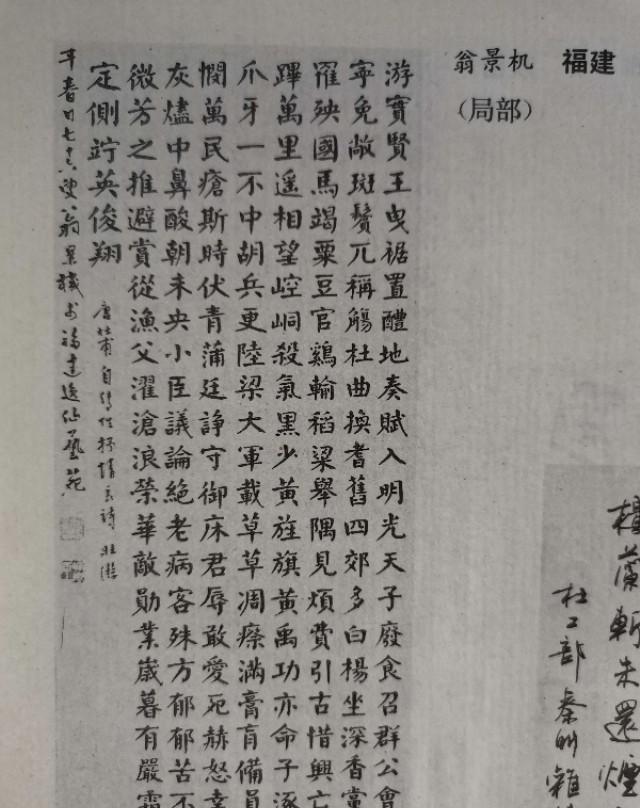 福建
翁景机
（局部）
游實賢王曳裾置醴地奏賦入明光天子廢食召群公會
寧免敝斑鬢兀稱觴杜曲換耆舊四郊多白楊坐深香黨
罹殃國馬竭粟豆官鷄輸稻粱舉隅見煩費引古惜興亡
蹕萬里遥相望崆峒殺氣黑少黄旌旗黄禹功亦命子涿
爪牙一不中胡兵更陸梁大軍載草草凋瘵滿膏肓備員
憫萬民瘡斯時伏青蒲廷諍守御床君辱敢愛死赫怒幸
灰燼中鼻酸朝未央小臣議論絶老病客殊方郁郁苦不
微芳之推避賞從漁父濯滄浪榮華敵勛業歲暮有嚴霜
定側竚英俊翔
唐 自傳性抒情長詩壯游
年春日七十叟翁景機書於福建逸仙藝苑
未還煙
杜工部秦州雜